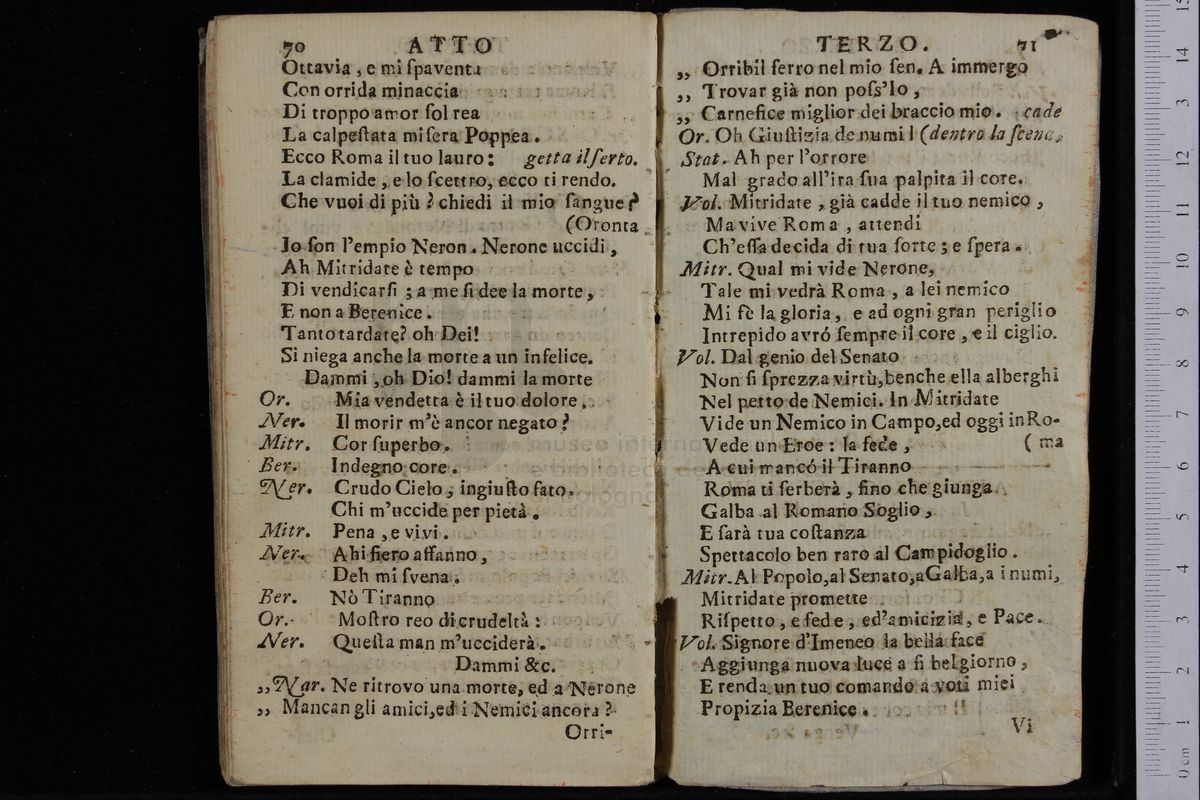 70 ATTO
Ottavia , e mi ſpaventa
Con orrida minaccia
Di troppo amor ſol rea
La calpeſtata miſera Poppea .
Ecco Roma il tuo lauro : getta il ſerto.
La clamide , e lo ſcettro, ecco ti rendo.
Che vuoi di più ? chiedi il mio ſangue ?
(Oronta
Io ſon l'empio Neron . Nerone uccidi ,
Ah Mitridate è tempo
Di vendicarſi ; a me ſi dee la morte ,
E non a Berenice .
Tanto tardate? oh Dei!
Si niega anche la morte a un infelice.
Dammi , oh Dio! dammi la morte
Or. Mia vendetta è il tuo dolore .
Ner. Il morir m'è ancor negato ?
Mitr. Cor ſuperbo .
Ber. Indegno core .
Ner. Crudo Cielo , ingiuſto fato .
Chi m'uccide per pietà .
Mitr. Pena , e vivi .
Ner. Ahi fiero affanno ,
Deh mi ſvena .
Ber. Nò Tiranno
Or. Moſtro reo di crudeltà :
Ner. Queſta man m'ucciderà .
Dammi &c.
,, Nar. Ne ritrovo una morte, ed a Nerone
,, Mancan gli amici,ed i Nemici ancora ?
Orri-
TERZO. 71
,, Orribil ferro nel mio ſen. A immergo
,, Trovar già non poſs'lo ,
,, Carnefice miglior dei braccio mio . cade
Or. Oh Giuſtizia de numi ! (dentro la ſcena.
Stat. Ah per l'orrore
Mal grado all'ira ſua palpita il core.
Vol. Mitridate , già cadde il tuo nemico ,
Ma vive Roma , attendi
Ch'eſſa decida di tua ſorte ; e ſpera .
Mitr. Qual mi vide Nerone,
Tale mi vedrà Roma , a lei nemico
Mi fè la gloria , e ad ogni gran periglio
Intrepido avró ſempre il core , e il ciglio.
Vol. Dal genio del Senato
Non ſi ſprezza virtù,benche ella alberghi
Nel petto de Nemici. In Mitridate
Vide un Nemico in Campo,ed oggi in Ro-
Vede un Eroe : la fede , ( ma
A cui mancó il Tiranno
Roma ti ſerberà , fino che giunga
Galba al Romano Soglio ,
E ſarà tua coſtanza
Spettacolo ben raro al Campidoglio .
Mitr. Al Popolo,al Senato,a Galba,a i numi,
Mitridate promette
Riſpetto , e fede , ed'amicizia , e Pace .
Vol. Signore d'Imeneo la bella face
Aggiunga nuova luce a ſi bel giorno ,
E renda un tuo comando a voti miei
Propizia Berenice .
Vi